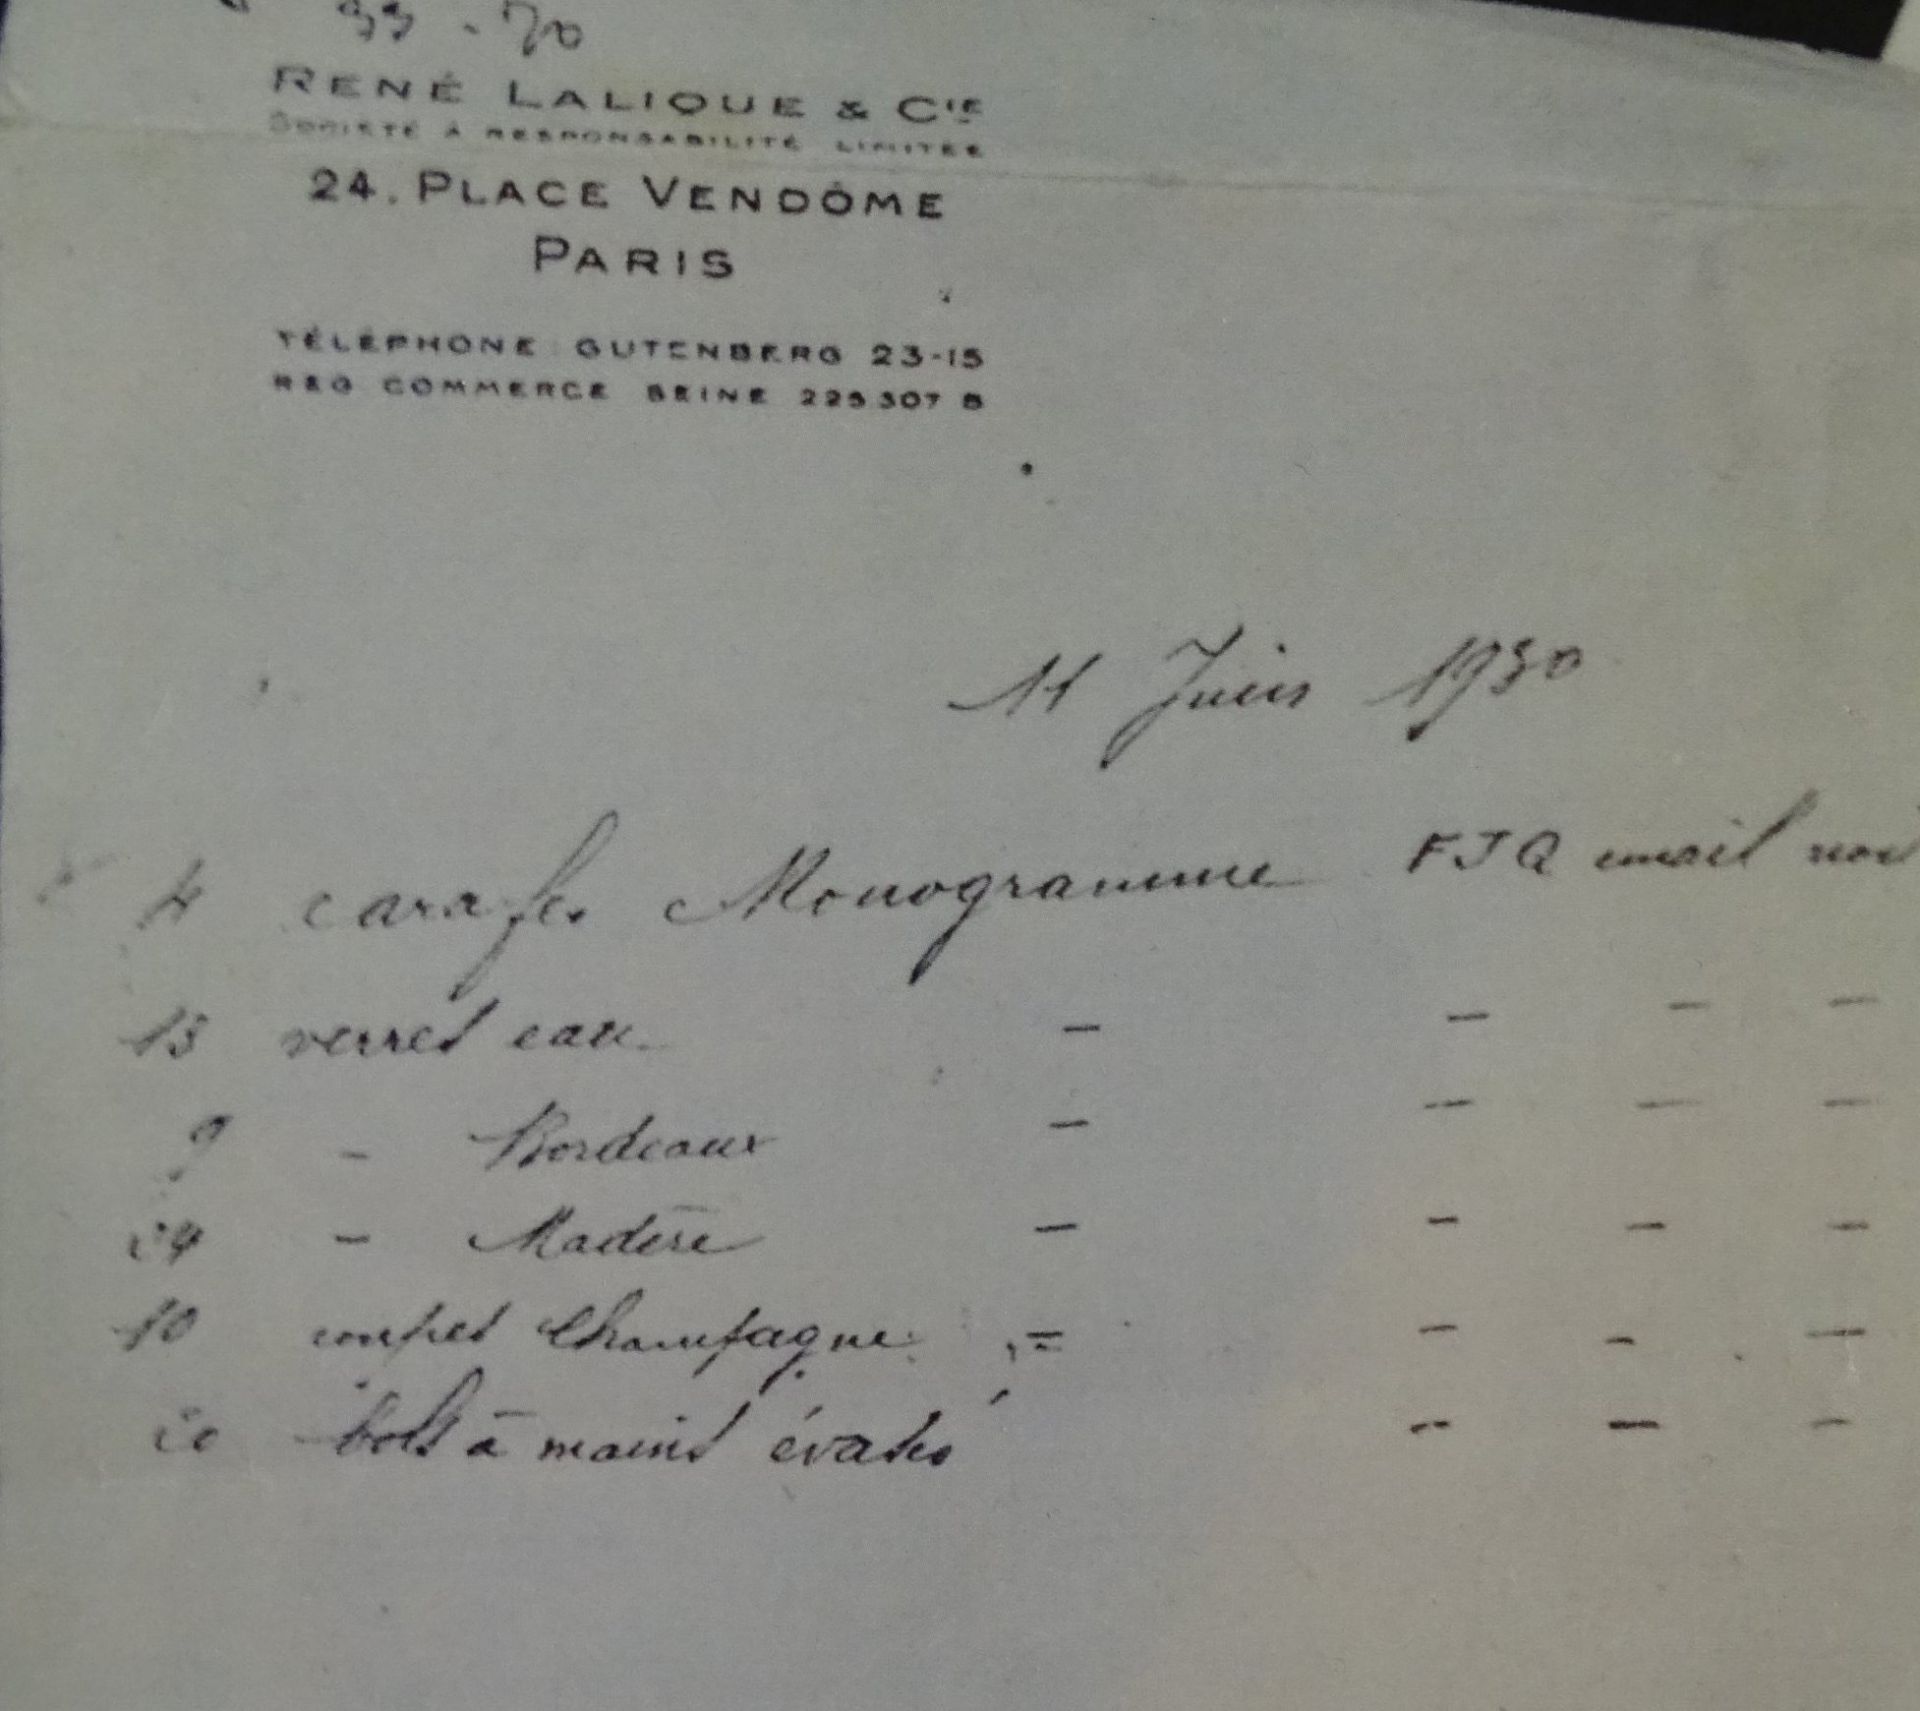 RENÉ LALIQUE & CIE
SOCIÉTÉ A RESPONSABILITÉ LIMITÉE
24. PLACE VENDÔME
PARIS
TÉLÉPHONE GUTENBERG 23-15
REG COMMERCE SEINE 225 307 B
11 Juin 1930
4 carafes Monogramme FJQ email noi
13 verres eau - - - -
9 - Bordeaux - - - -
24 - Madère - - - -
10 coupes Champagne - - - -
bols à mains évasés - - -